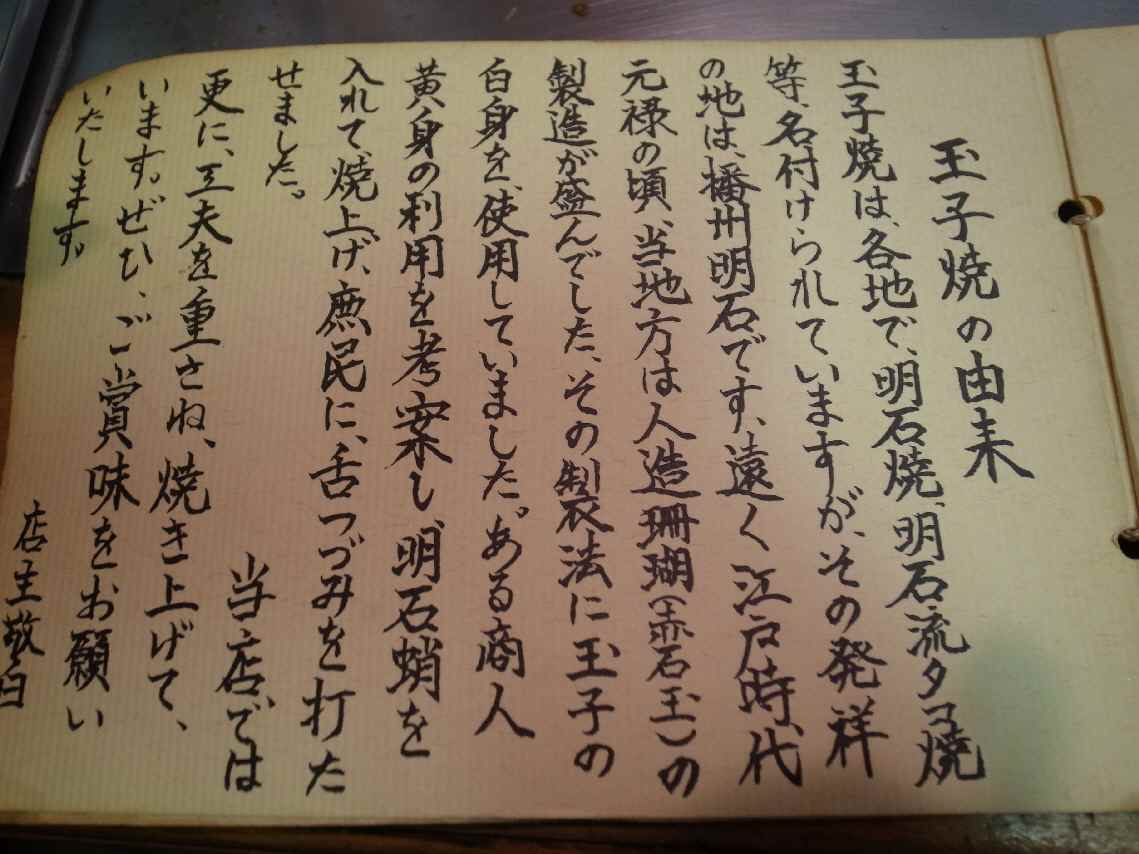 玉子焼の由来
玉子焼は、各地で、明石焼、明石流タコ焼
等、名付けられていますが、その発祥
の地は、播州明石です、遠く江戸時代
元禄の頃、当地方は人造珊瑚(赤石玉)の
製造が盛んでした、その製法に玉子の
白身を、使用していました。ある商人
黄身の利用を考案し、明石蛸を
入れて、焼上げ、庶民に、舌つづみを打た
せました。
当店、では
更に、工夫を重さね、焼き上げて、
います。ぜひ、ご賞味をお願い
いたします。
店主敬白